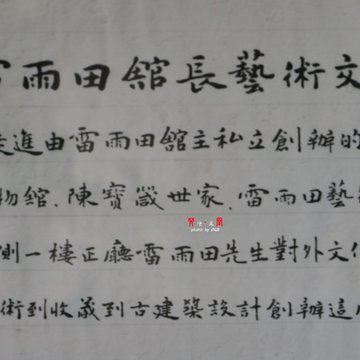 雨田舘長藝術文
走進由雷雨田舘主私立創辦的
物舘.陳寶箴世家.雷雨田藝
側一樓正廳雷雨田先生對外文化
術到收藏到古建築設計創辦這